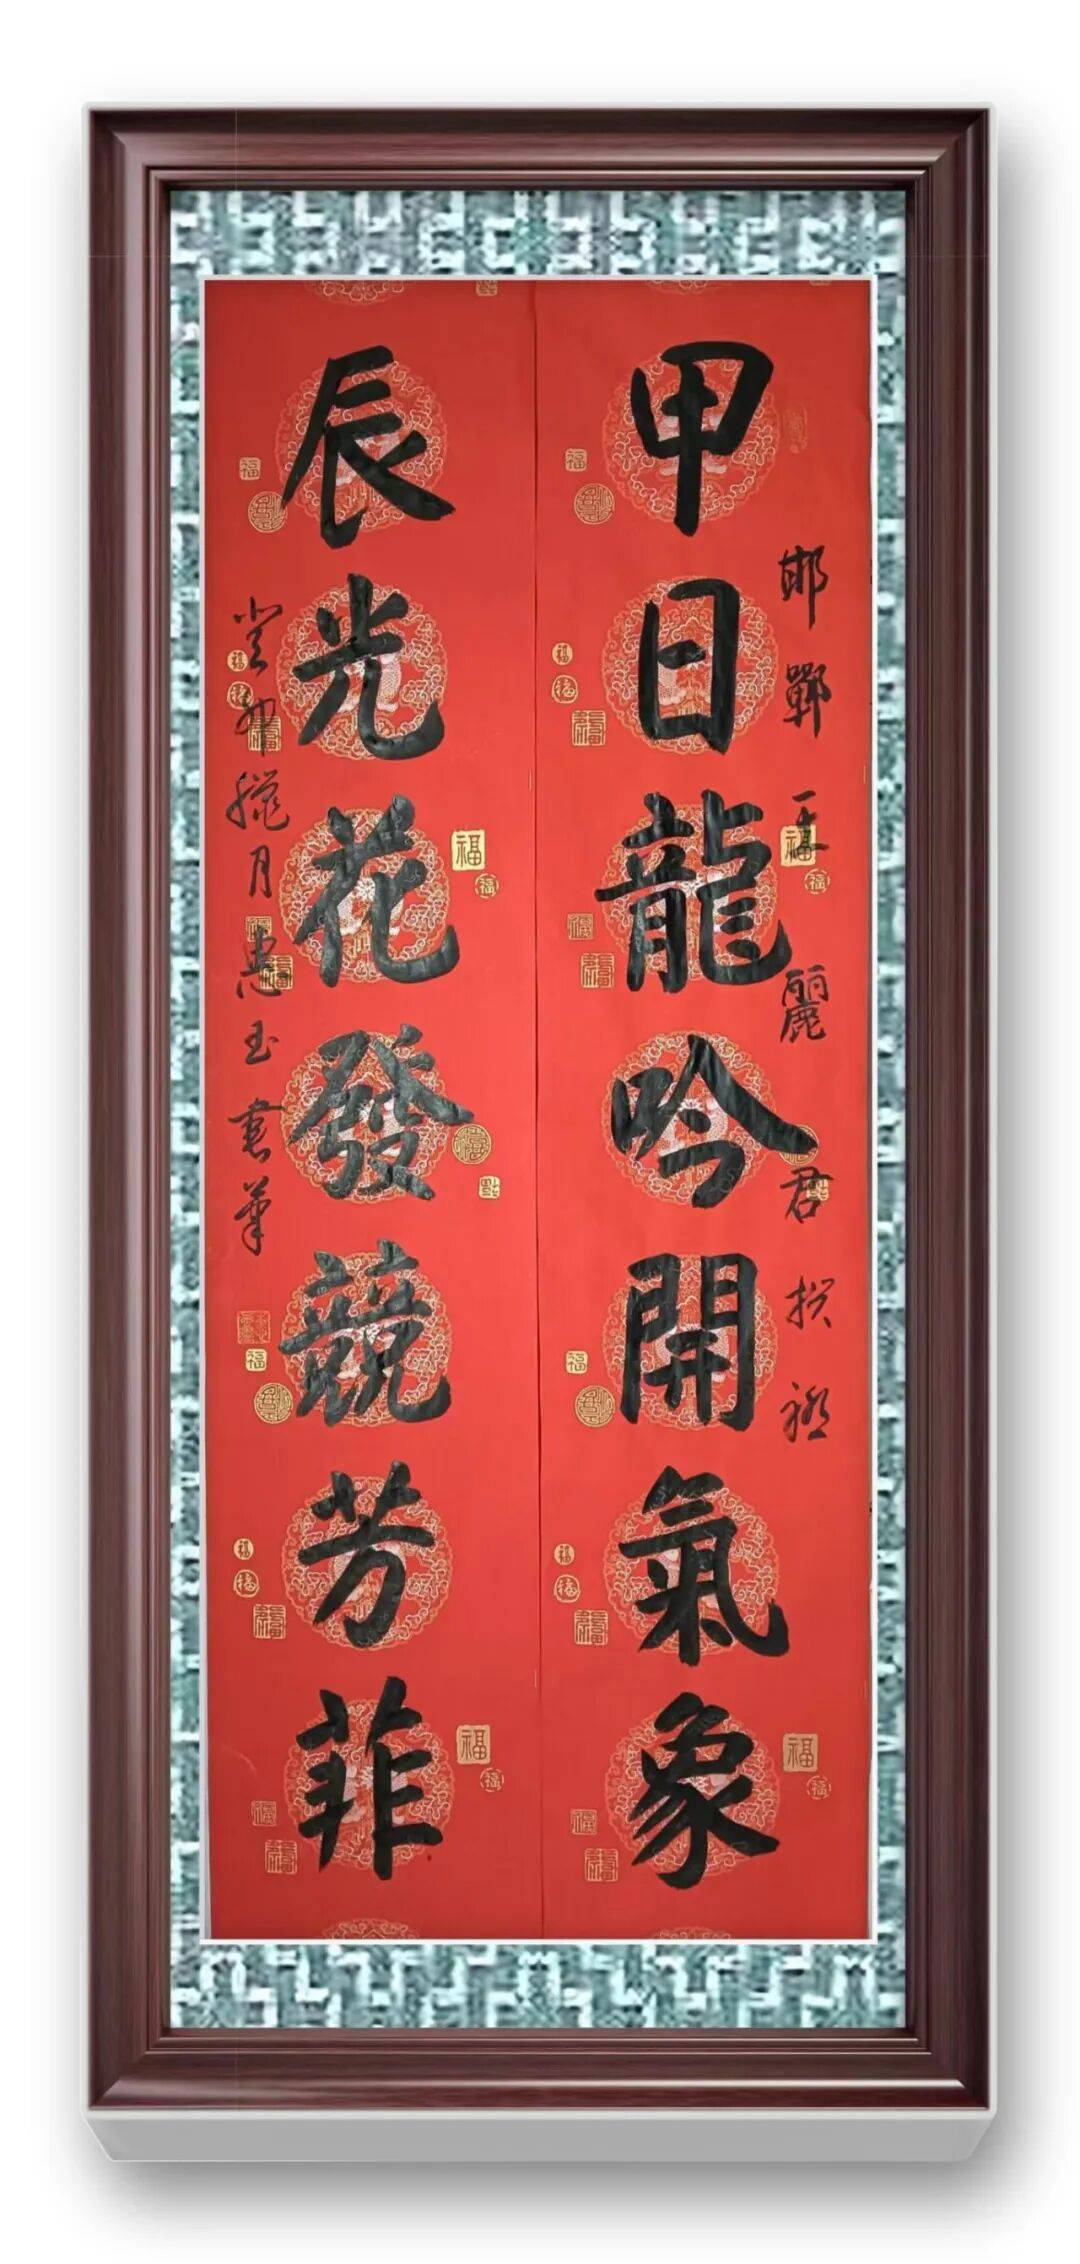 甲日龍吟開氣象
邯鄲王麗君撰聯
辰光花發競芳菲
癸卯臘月惠玉書華
福